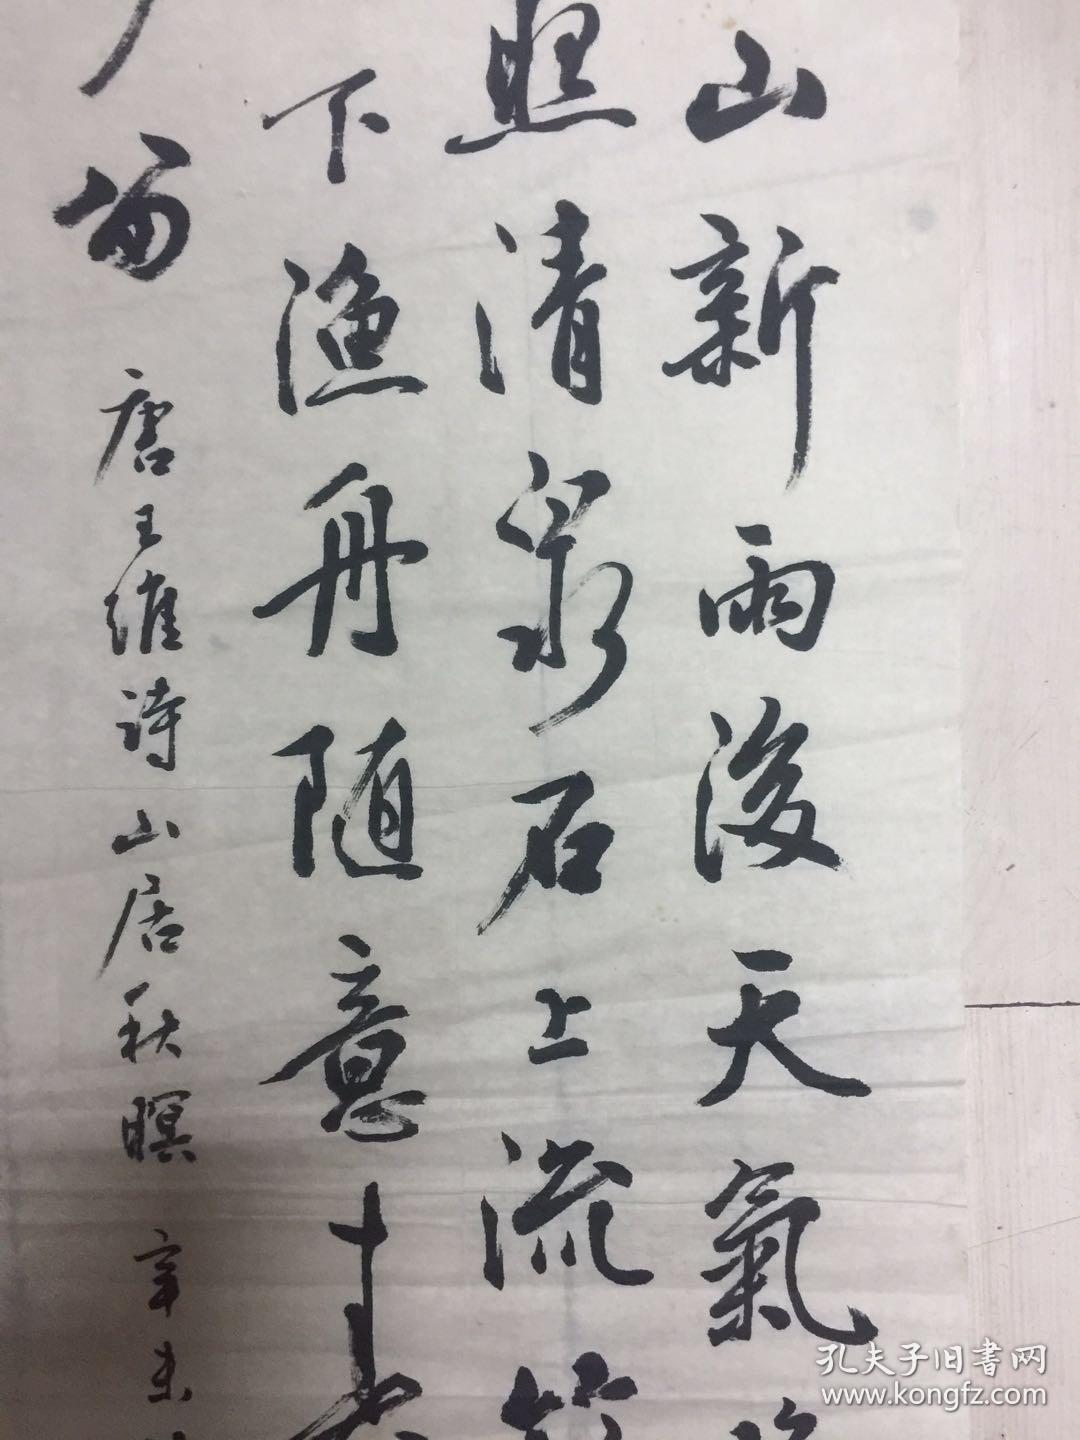 山新雨後天氣
照清泉石上流
下漁舟隨意
留
唐王維詩山居秋暝 辛未
孔夫子旧书网
www.kongfz.com